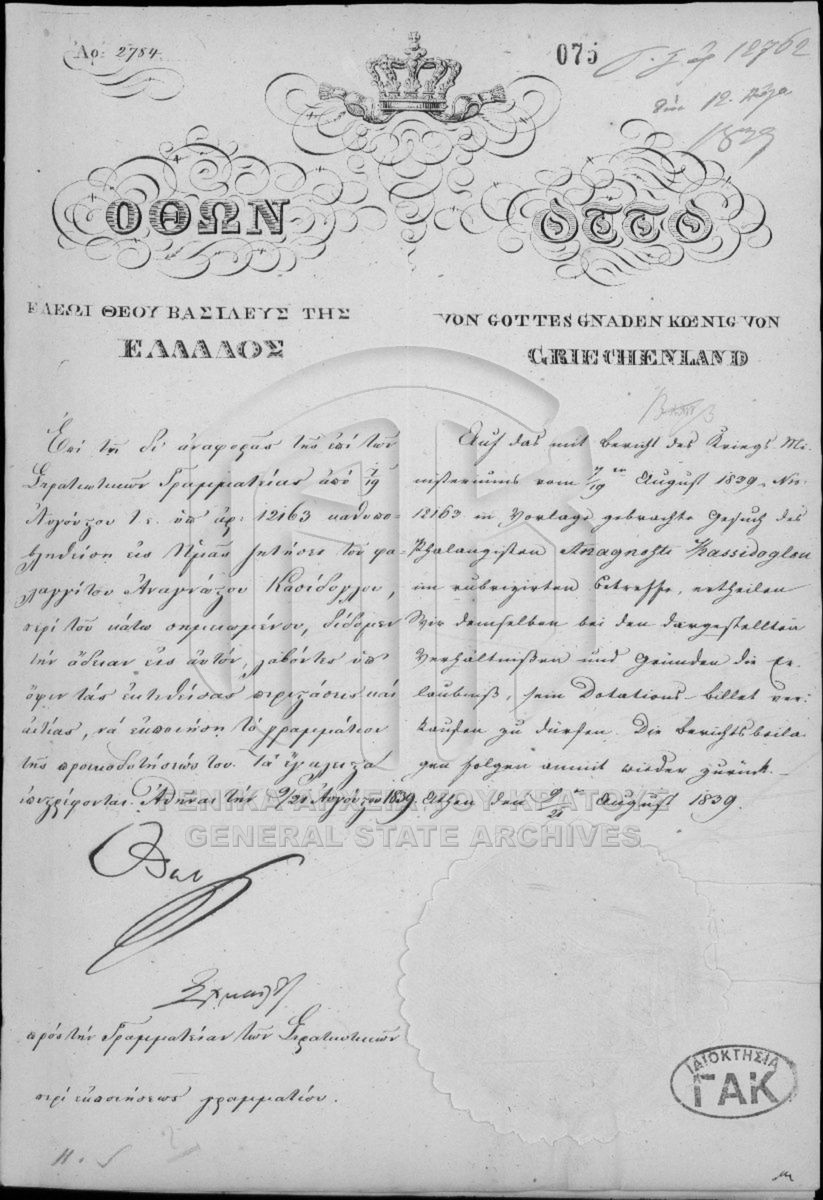 Αρ: 2784
075
12762
12
1839
ΟΘΩΝ
ΕΛΕΩΙ ΘΕΟΥ ΒΑΣΙΛΕΥΣ ΤΗΣ
ΕΛΛΑΔΟΣ
Ἐπὶ τῇ δι' ἀναφορᾶς τῆς ἐπὶ τῶν
Στρατιωτικῶν Γραμματείας ἀπὸ 7/19
Αὐγούστου τ.ἔ. ὑπ' ἀρ: 12163 καθυπο-
βληθείσῃ εἰς Ἡμᾶς αἰτήσει τοῦ φα-
λαγγίτου Ἀναγνώστου Κασίδογλου,
περὶ τοῦ κάτω σημειωμένου, δίδομεν
τὴν ἄδειαν εἰς αὐτὸν, λαβόντες ὑπ'
ὄψιν τὰς ἐκτεθείσας περιστάσεις καὶ
αἰτίας, νὰ ἐκποιήσῃ τὸ γραμμάτιον
τῆς προικοδοτήσεώς του. Τὰ ἔγγραφα
ἐπιστρέφονται. Ἀθῆναι τὴν 9/21 Αὐγούστου 1839.
Όθων
πρὸς τὴν Γραμματείαν τῶν Στρατιωτικῶν
περὶ ἐκποιήσεως γραμματίου.
OTTO
VON GOTTES GNADEN KŒNIG VON
GRIECHENLAND
Auf das mit Bericht des Kriegs Mi-
nisteriums vom 7/19ten August 1839, Nro
12163 in Vorlage gebrachte Gesuch des
Phalangisten Anagnosti Kassidoglou
im rubrizirten Betreffe, ertheilen
Wir demselben bei den dargestellten
Verhältnißen und Gründen die Er-
laubniß, sein Dotations-billet ver-
kaufen zu dürfen. Die Berichtsbeila-
gen folgen anmit wieder zurück.
Athen den 9/21ten August 1839.
ΓΕΝΙΚΑ ΑΡΧΕΙΑ ΤΟΥ ΚΡΑΤΟΥΣ
GENERAL STATE ARCHIVES
ΙΔΙΟΚΤΗΣΙΑ
ΓΑΚ